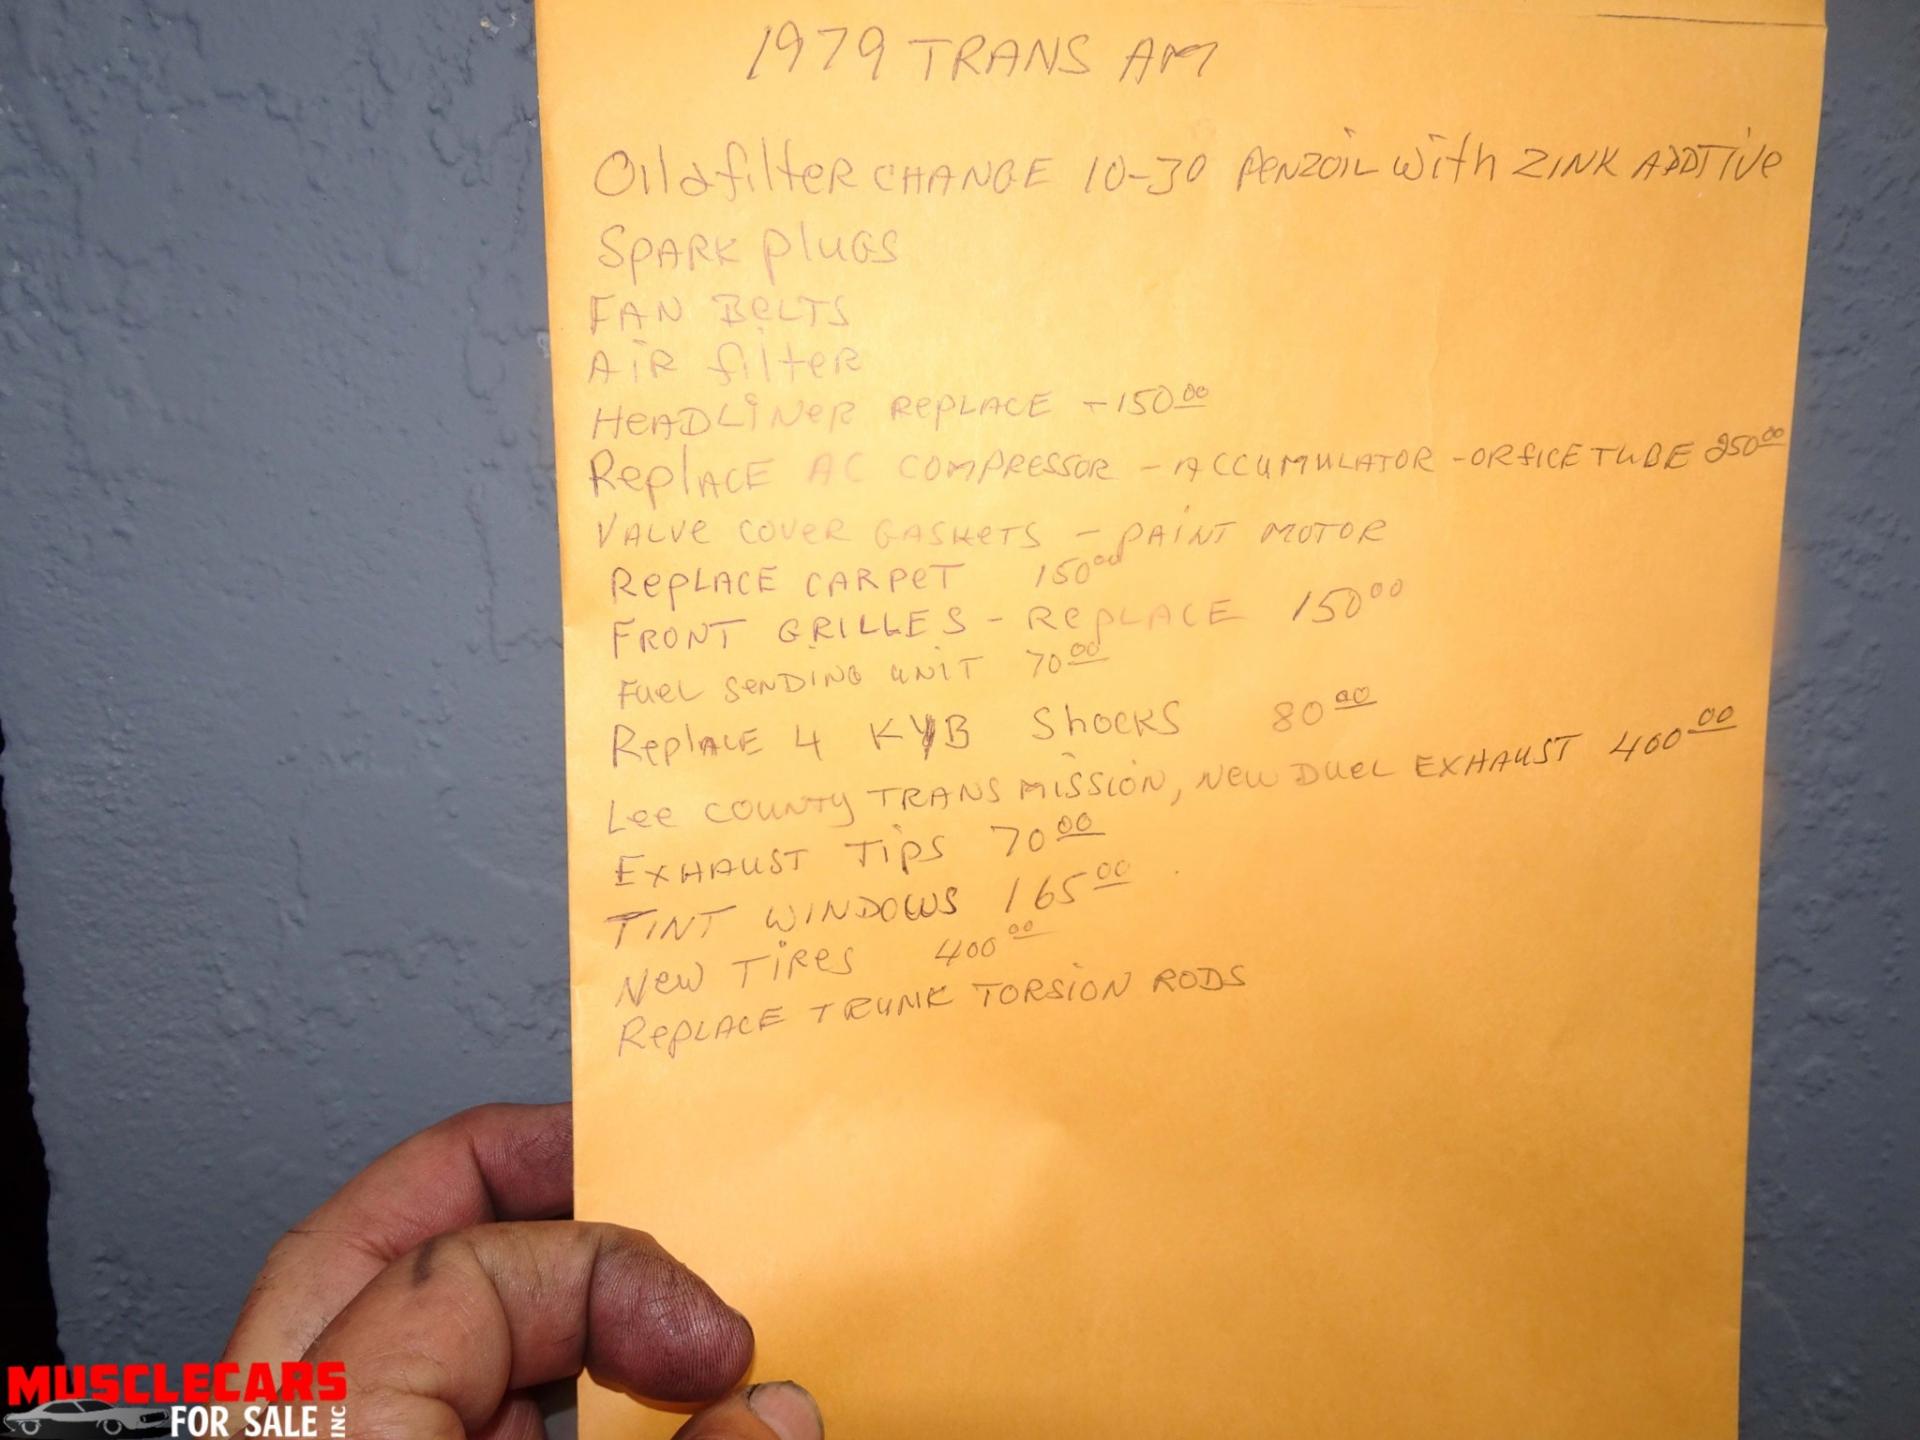 1979 TRANS AM
Oil & filter CHANGE 10-30 Penzoil with ZINK ADDTive
SPARK Plugs
FAN BeLTS
AiR filter
HeADLiNeR RePLACE - 150.00
Replace AC COMPRESSOR - ACCUMULATOR - ORfICE TUBE 250.00
VALVe COVeR GASKeTS - PAiNT MOTOR
RePLACE CARPeT 150.00
FRONT GRILLES - RePLACE 150.00
FUeL SeNDiNG UNiT 70.00
RePlACE 4 KYB ShOCKS 80.00
Lee COUNTY TRANSMiSSiON, NeW DUeL EXHAUST 400.00
EXHAUST TiPS 70.00
TINT WINDOWS 165.00
NeW TiReS 400.00
RePLACE TRUNK TORSiON RODS
MUSCLECARS
FOR SALE INC